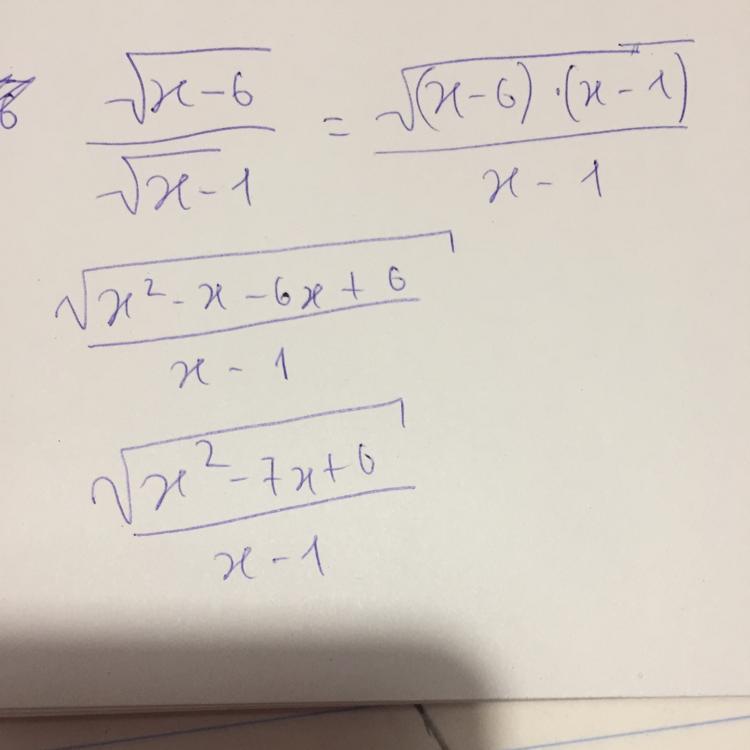 6 √(x-6) / √(x-1) = √((x-6)·(x-1)) / (x-1)
√(x²-x-6x+6) / (x-1)
√(x²-7x+6) / (x-1)